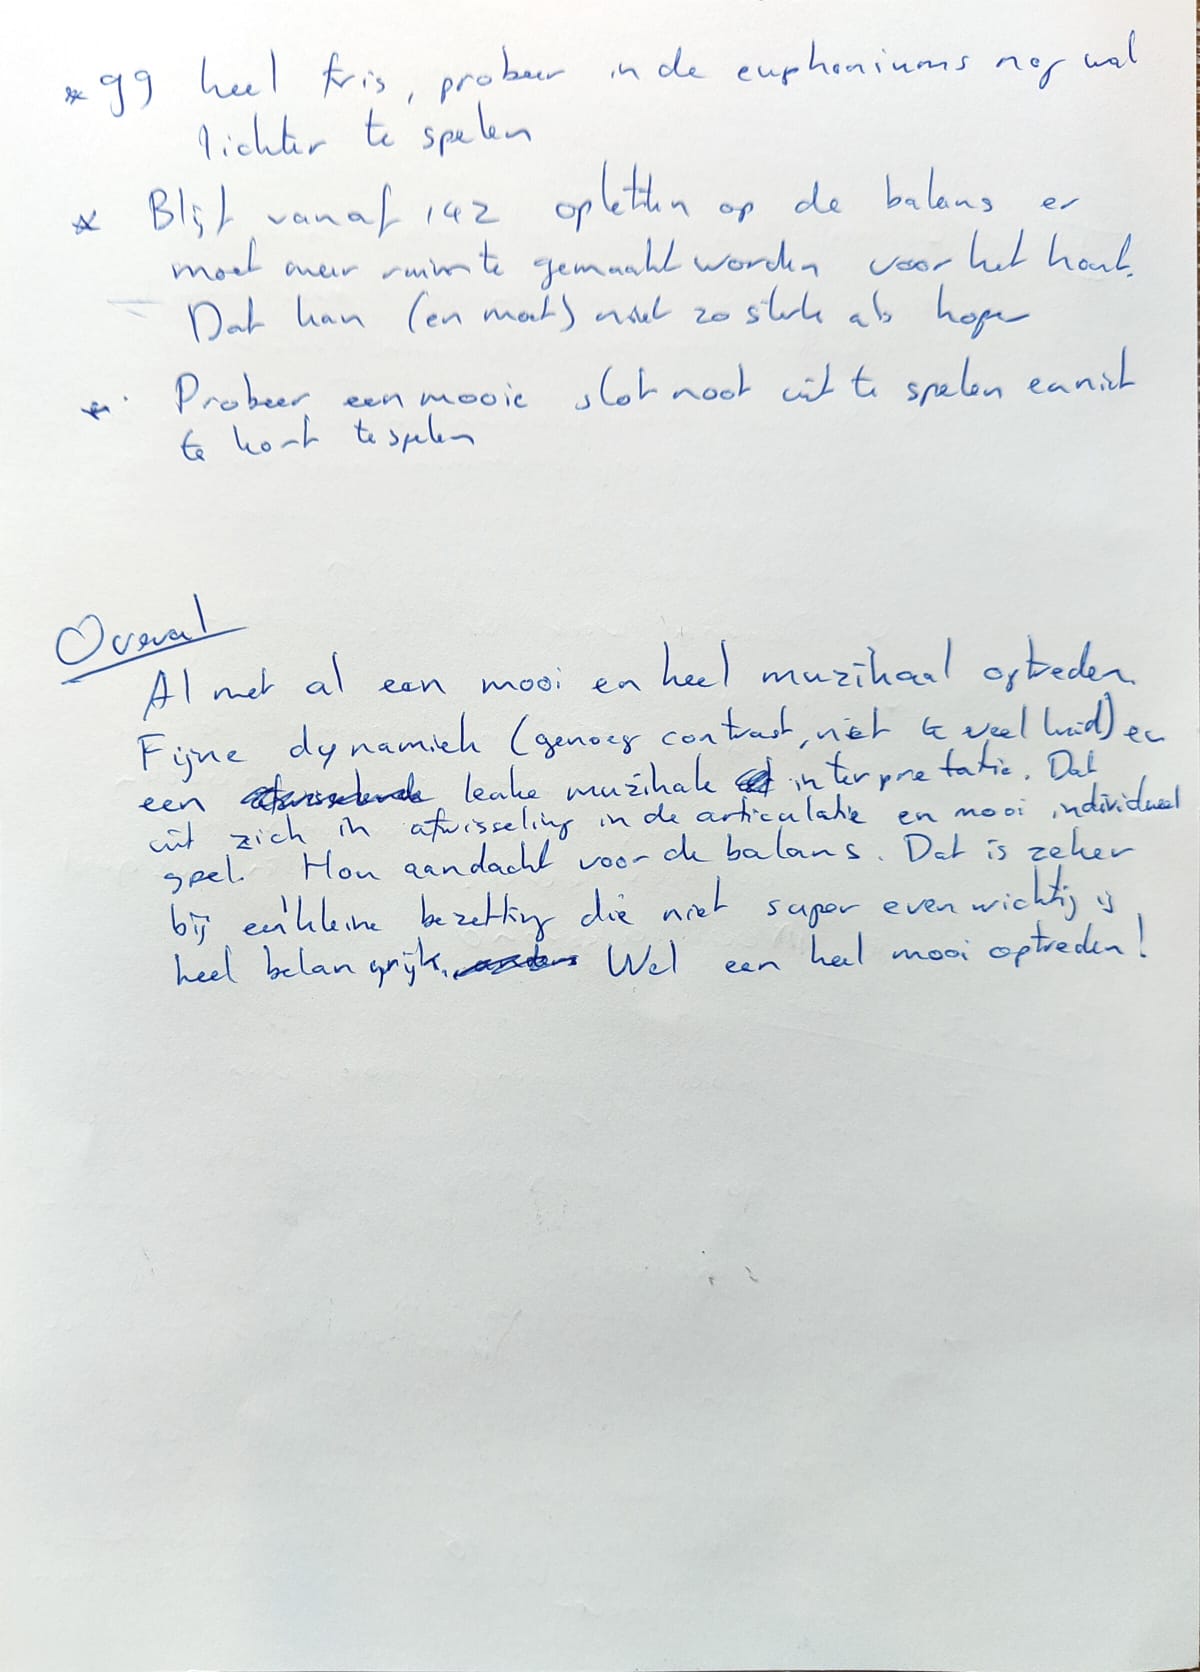 * 99 heel fris, probeer in de euphoniums nog wat
lichter te spelen
* Blijf vanaf 142 opletten op de balans er
moet meer ruimte gemaakt worden voor het hout.
Dat kan (en moet) niet zo sterk als koper
* Probeer een mooie slot noot uit te spelen en niet
te kort te spelen
Overal
Al met al een mooi en heel muzikaal optreden.
Fijne dynamiek (genoeg contrast, niet te veel luid) en
een leuke muzikale interpretatie. Dat
uit zich in afwisseling in de articulatie en mooi individueel
spel. Hou aandacht voor de balans. Dat is zeker
bij een kleine bezetting die niet super evenwichtig is
heel belangrijk. Wel een heel mooi optreden!